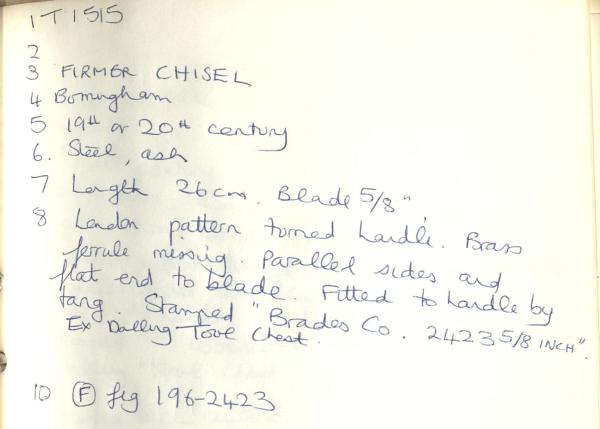 1 T 1515
2
3 FIRMER CHISEL
4 Bormingham
5 19th or 20th century
6. Steel, ash
7 Length 26cm. Blade 5/8"
8 London pattern turned handle. Brass
ferrule missig. Parallel sides and
flat end to blade. Fitted to handle by
tang. Stamped "Brades Co. 2423 5/8 INCH".
Ex Dalling Tool Chest.
10 (F) fig 196-2423